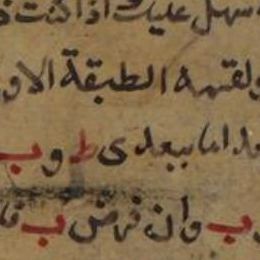 سهل عليك اذا كنت
ولقسمه الطبقة الاو
اما ببعدى ط و ب
ب وان فرض ب فا